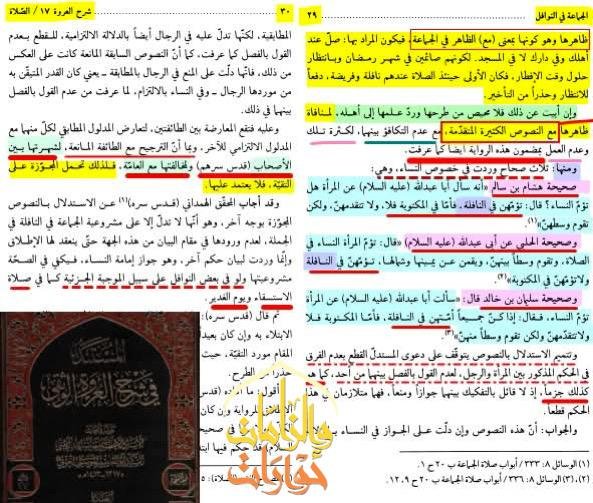 الجماعة في النوافل
٢٩
ظاهرها وهو كونها بمعنى (مع) الظاهر في الجماعة، فيكون المراد بها: صلّ عند
أهلك وفي دارك لا في المسجد. لكونهم صائمين في شهر رمضان وبانتظار
حلول وقت الإفطار، فكان الأولى حينئذ الصلاة عندهم نافلة وفريضة، دفعاً
للانتظار وحذراً من التأخير.
وإن أبيت عن ذلك فلا محيص من طرحها وردّ علمها إلى أهله، لمنافاة
ظاهرها مع النصوص الكثيرة المتقدّمة، مع عدم التكافؤ بينهما، لكثرة تلك
وعدم العمل بمضمون هذه الرواية أيضاً كما عرفت.
ومنها: ثلاث صحاح وردت في خصوص النساء، وهي:
صحيحة هشام بن سالم «أنه سأل أبا عبدالله (عليه السلام) عن المرأة هل
تؤمّ النساء؟ قال: تؤمّهن في النافلة، فأمّا في المكتوبة فلا، ولا تتقدمهنّ، ولكن
تقوم وسطهنّ»(١).
وصحيحة الحلبي عن أبي عبدالله (عليه السلام) «قال: تؤمّ المرأة النساء في
الصلاة، وتقوم وسطاً بينهنّ، ويقمن عن يمينها وشمالها، تؤمّهنّ في النافلة
ولا تؤمّهنّ في المكتوبة»(٢).
وصحيحة سليمان بن خالد قال: «سألت أبا عبدالله (عليه السلام) عن المرأة
تؤمّ النساء، فقال: إذا كنّ جميعاً أمّتهن في النافلة، فأمّا المكتوبة فلا
ولا تتقدّمهنّ ولكن تقوم وسطاً منهنّ»(٣).
وتتميم الاستدلال بالنصوص يتوقّف على دعوى المستدلّ القطع بعدم الفرق
في الحكم المذكور بين المرأة والرجل، لعدم القول بالفصل بينهما من أحد، كما هو
كذلك جزماً، إذ لا قائل بالتفكيك بينهما جوازاً ومنعاً، فهما متلازمان في هذا
الحكم قطعاً.
والجواب: أنّ هذه النصوص وإن دلّت على الجواز في النساء
(١) الوسائل ٨: ٣٣٣ / أبواب صلاة الجماعة ب ٢٠ ح ١.
(٢)، (٣) الوسائل ٨: ٣٣٦ / أبواب صلاة الجماعة ب ٢٠ ح ٩، ١٢.
٣٠
شرح العروة ١٧ / الصّلاة
المطابقية، لكنّها تدلّ عليه في الرجال أيضاً بالدلالة الالتزامية، للقطع بعدم
القول بالفصل كما عرفت، كما أنّ النصوص السابقة المانعة كانت على العكس
من ذلك، فإنّها دلّت على المنع في الرجال بالمطابقة ـ فإنّه كان القدر المتيقّن به
من موردها الرجال ـ وفي النساء بالالتزام، لما عرفت من عدم القول بالفصل
بينهما.
وعليه فتقع المعارضة بين الطائفتين، لتعارض المدلول المطابقي لكلّ منهما مع
المدلول الالتزامي للآخر. وبما أنّ الترجيح مع الطائفة المانعة، لشهرتها بين
الأصحاب (قدس سرهم) ومخالفتها مع العامّة، فلذلك تحمل المجوّزة على
التقيّة، فلا يعتمد عليها.
وقد أجاب المحقّق الهمداني (قدس سره)(١) عن الاستدلال بالنصوص
المجوّزة بوجه آخر، وهو أنّها لا تدلّ إلا على مشروعية الجماعة في النافلة في
الجملة، لعدم ورودها في مقام البيان من هذه الجهة حتّى ينعقد لها الإطلاق
وإنّما وردت لبيان حكم آخر، وهو جواز إمامة النساء، فيكفي في الصحّة
مشروعيتها ولو في بعض النوافل على سبيل الموجبة الجزئية كما في صلاة
الاستسقاء ويوم الغدير.
ثمّ قال (قدس سره):
الابتلاء به وإن كان بعيداً
المقام مورد التقيّة، فلا
حذراً من الطرح.
أقول:
المستند
في شرح العروة الوثقى
حوارات